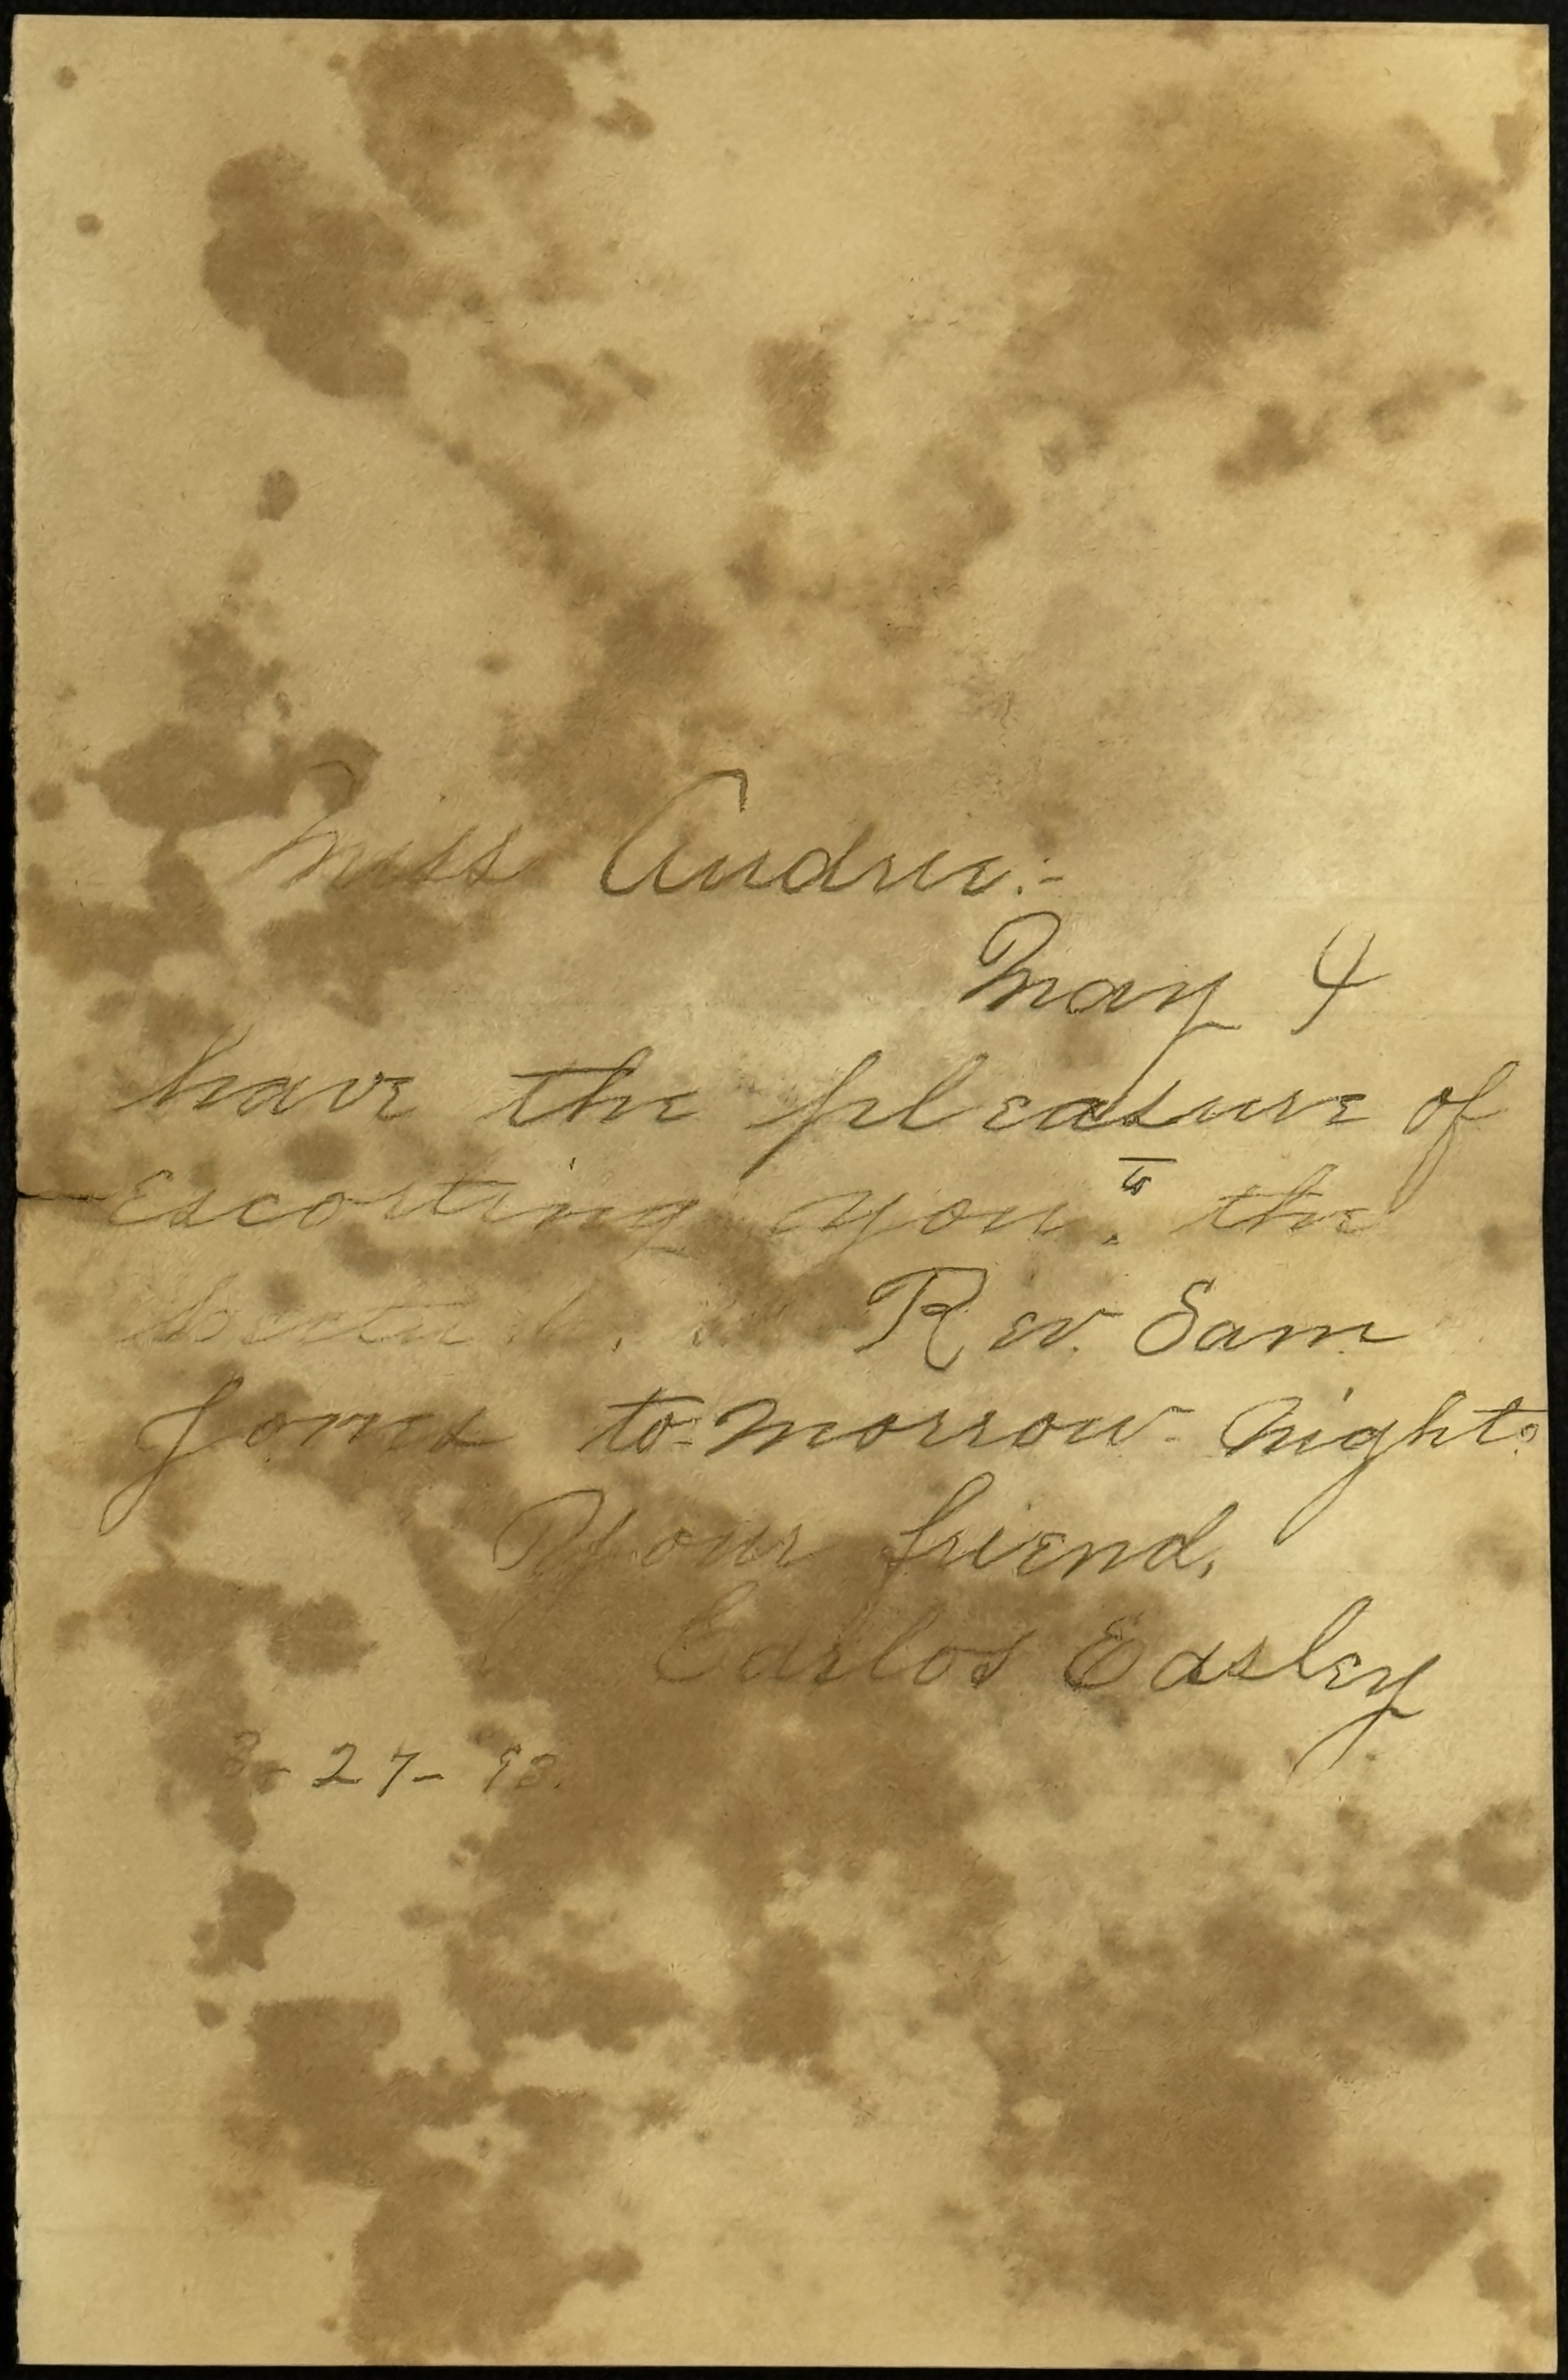 Miss Audrie:-
May I
have the pleasure of
escorting you to the
Rev. Sam
Jones to-morrow-night.
Your friend,
Carlos Easley
3-27-93.